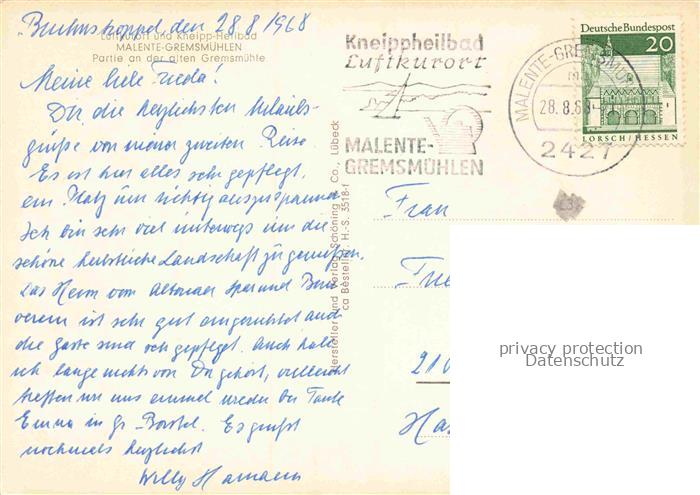 Bruhnskoppel den 28.8.1968
Luftkurort und Kneipp-Heilbad
MALENTE-GREMSMÜHLEN
Partie an der alten Gremsmühle
Meine liebe Frieda!
Dir die herzlichsten Urlaubs-
grüße von meiner zweiten Reise
Es ist hier alles sehr gepflegt,
ein Platz um richtig auszuspannen
Ich bin sehr viel unterwegs um die
schöne herbstliche Landschaft zu genießen.
Das Heim vom Altonaer Spar und Bau
verein ist sehr gut eingerichtet und
die Gäste sind sehr gepflegt. Auch habe
ich lange nichts von Dir gehört, vielleicht
treffen wir uns einmal wieder bei Tante
Emma in Gr. Borstel. Es grüßt
nochmals herzlichst
Willy Hamann
Hersteller und Verlag Schöning & Co., Lübeck
Bestell-Nr. H.-S. 3518-f
Kneippheilbad
Luftkurort
MALENTE-
GREMSMÜHLEN
MALENTE-GREMSMÜHLEN
28.8.68
2427
Deutsche Bundespost
20
LORSCH/HESSEN
Frau
210
Ha
privacy protection
Datenschutz